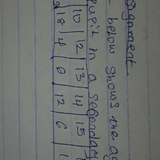 signment
below shows the ag
pupil in a secondary
10 12 13 14 15
18 4 12 6